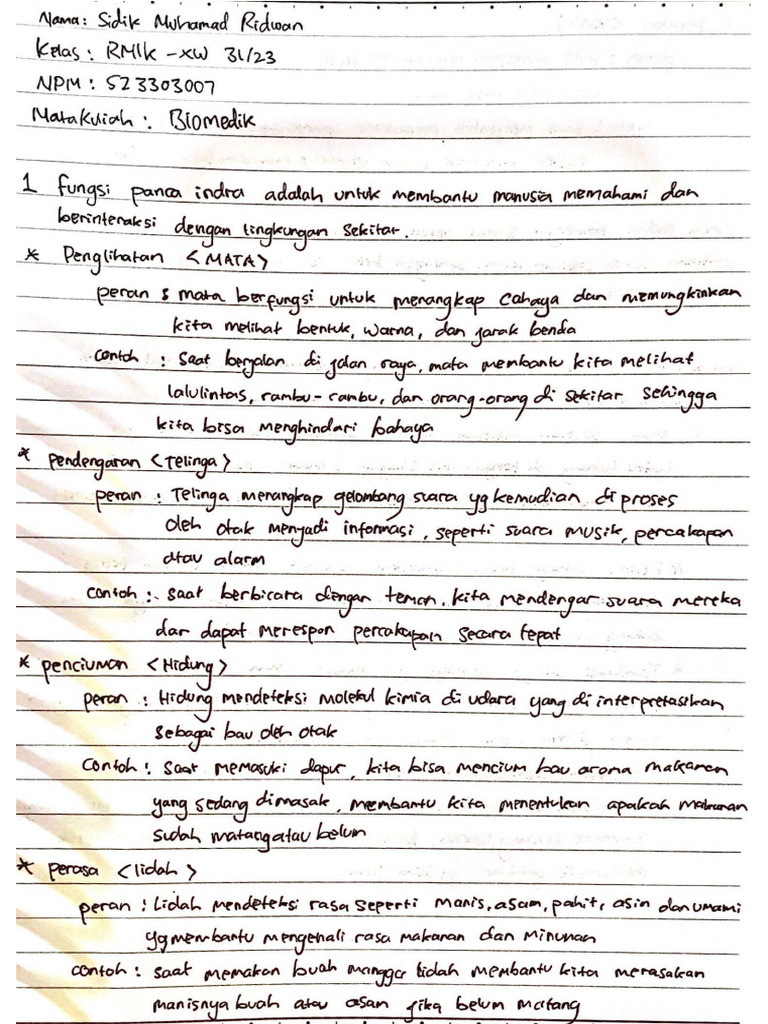 Nama: Sidik Muhamad Ridwan
Kelas: RMIK -XW 31/23
NPM: 523303007
Matakuliah: Biomedik
1 fungsi panca indra adalah untuk membantu manusia memahami dan
berinteraksi dengan lingkungan sekitar.
* Penglihatan <MATA>
peran : mata berfungsi untuk menangkap cahaya dan memungkinkan
kita melihat bentuk, warna, dan jarak benda
contoh : saat berjalan di jalan raya, mata membantu kita melihat
lalulintas, rambu-rambu, dan orang-orang di sekitar sehingga
kita bisa menghindari bahaya
* pendengaran <Telinga>
peran : Telinga menangkap gelombang suara yg kemudian di proses
oleh otak menjadi informasi, seperti suara musik, percakapan
atau alarm
contoh : saat berbicara dengan teman, kita mendengar suara mereka
dan dapat merespon percakapan secara tepat
* penciuman <Hidung>
peran : Hidung mendeteksi molekul kimia di udara yang di interpretasikan
sebagai bau oleh otak
Contoh : saat memasuki dapur, kita bisa mencium bau aroma makanan
yang sedang dimasak, membantu kita menentukan apakah makanan
sudah matang atau belum
* perasa <lidah>
peran : Lidah mendeteksi rasa seperti manis, asam, pahit, asin dan umami
yg membantu mengenali rasa makanan dan minuman
contoh : saat memakan buah mangga lidah membantu kita merasakan
manisnya buah atau asam jika belum matang